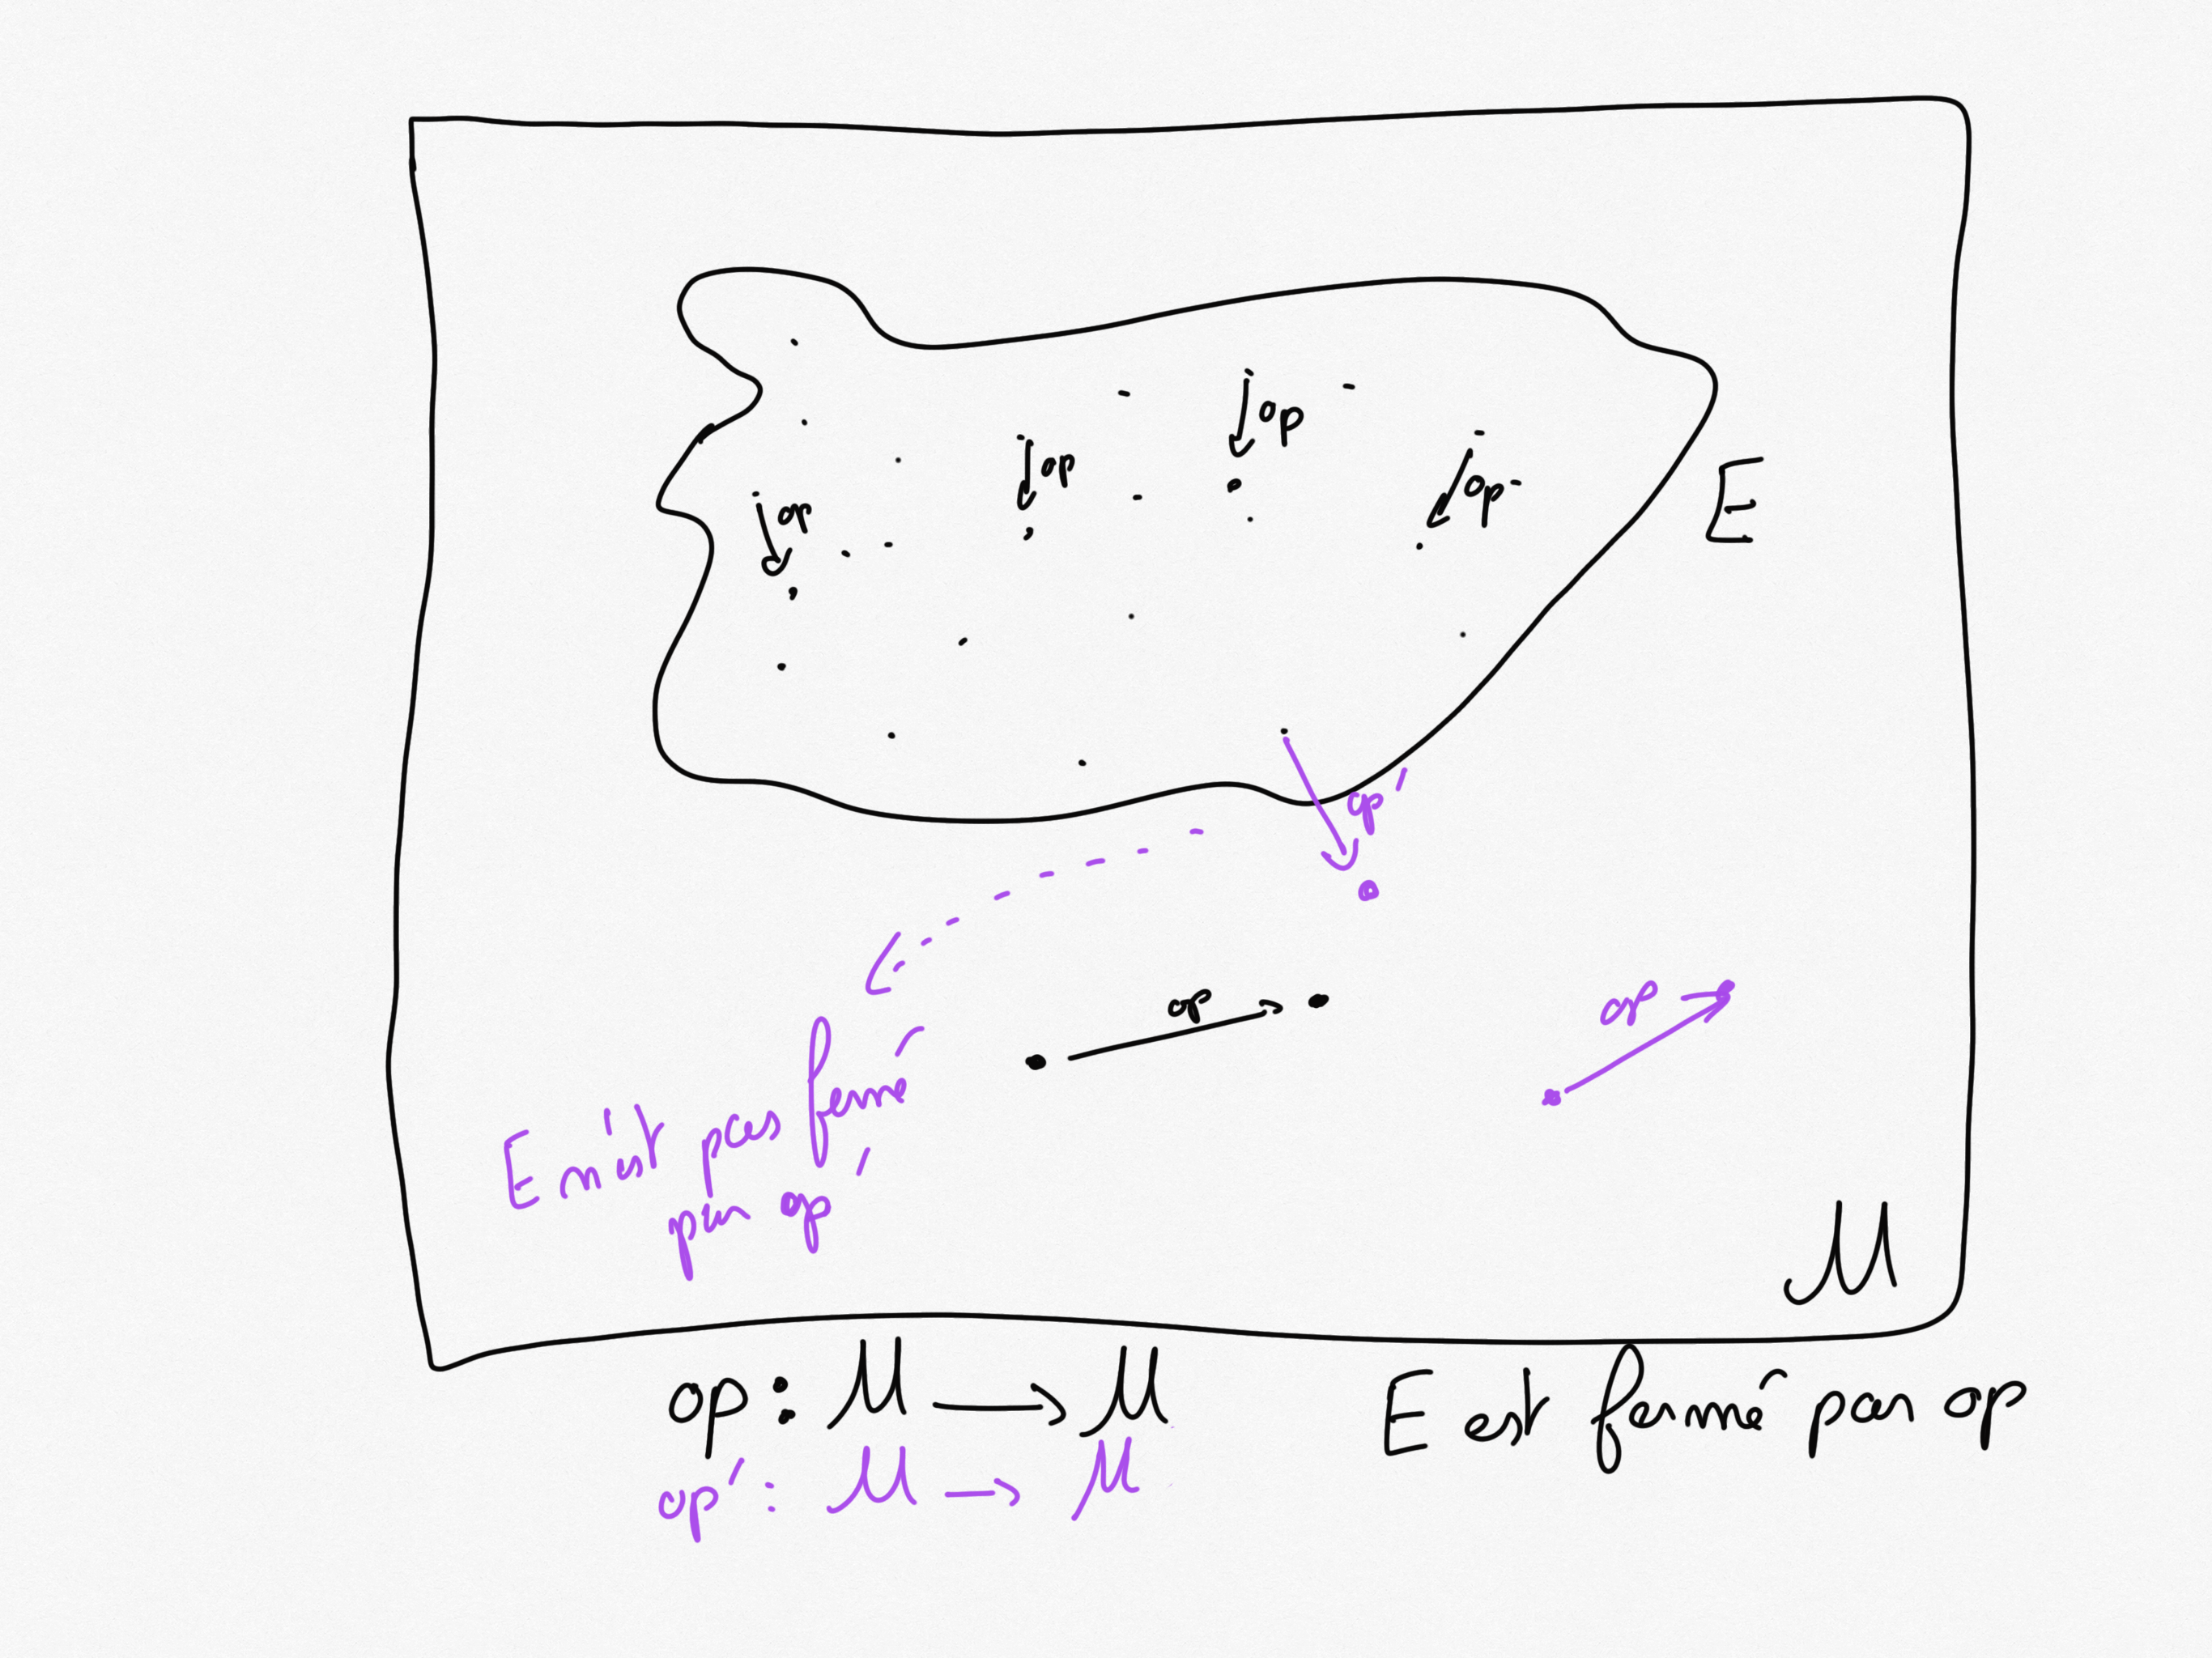 op
op
op
op
E
op'
op
op
E n'est pas fermé
par op'
U
op : U → U
E est fermé par op
op' : U → U